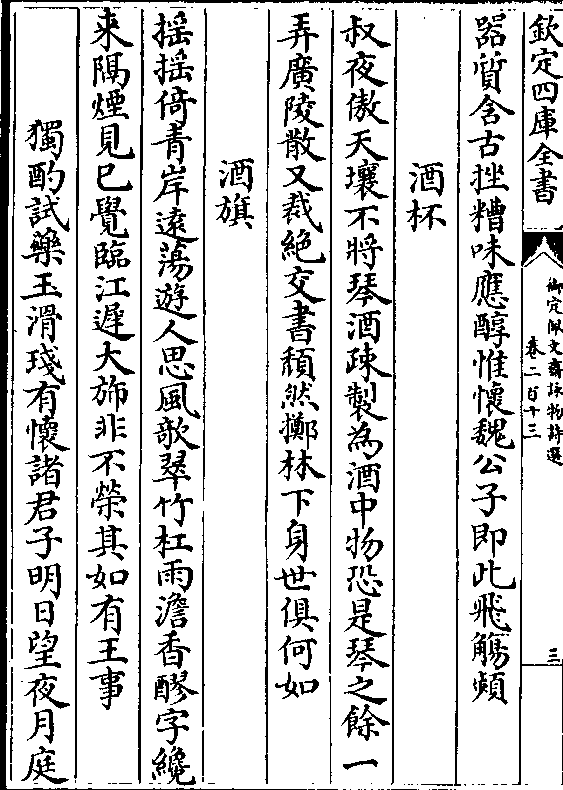 欽定四庫全書
御定佩文齋詠物詩選
卷二百十三
三
器質含古挫糟味應醇惟懷魏公子即此飛觴頻
酒杯
叔夜傲天壤不將琴酒疎製為酒中物恐是琴之餘一
弄廣陵散又裁絶交書頽然擲林下身世俱何如
酒旗
搖搖倚青岸遠蕩遊人思風歌翠竹杠雨澹香醪字纔
来隔煙見已覺臨江遲大斾非不榮其如有王事
獨酌試藥玉滑琖有懷諸君子明日望夜月庭